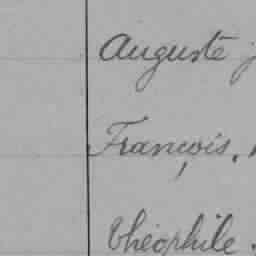 Auguste
François,
théophile.